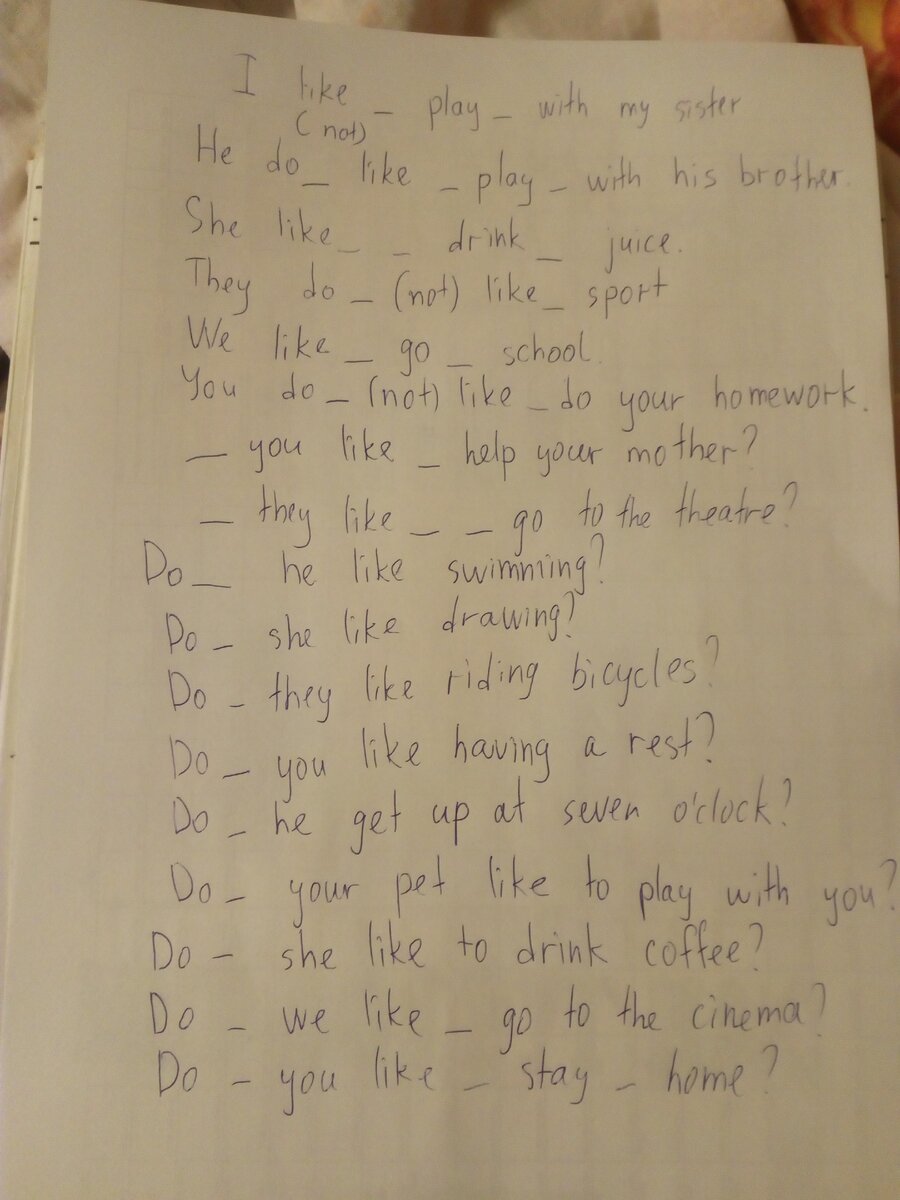 I like _ play _ with my sister
(not)
He do _ like _ play _ with his brother.
She like _ _ drink _ juice.
They do _ (not) like _ sport
We like _ go _ school.
You do _ (not) like _ do your homework.
_ you like _ help your mother?
_ they like _ _ go to the theatre?
Do _ he like swimming?
Do _ she like drawing?
Do _ they like riding bicycles?
Do _ you like having a rest?
Do _ he get up at seven o'clock?
Do _ your pet like to play with you?
Do _ she like to drink coffee?
Do _ we like _ go to the cinema?
Do _ you like _ stay _ home?